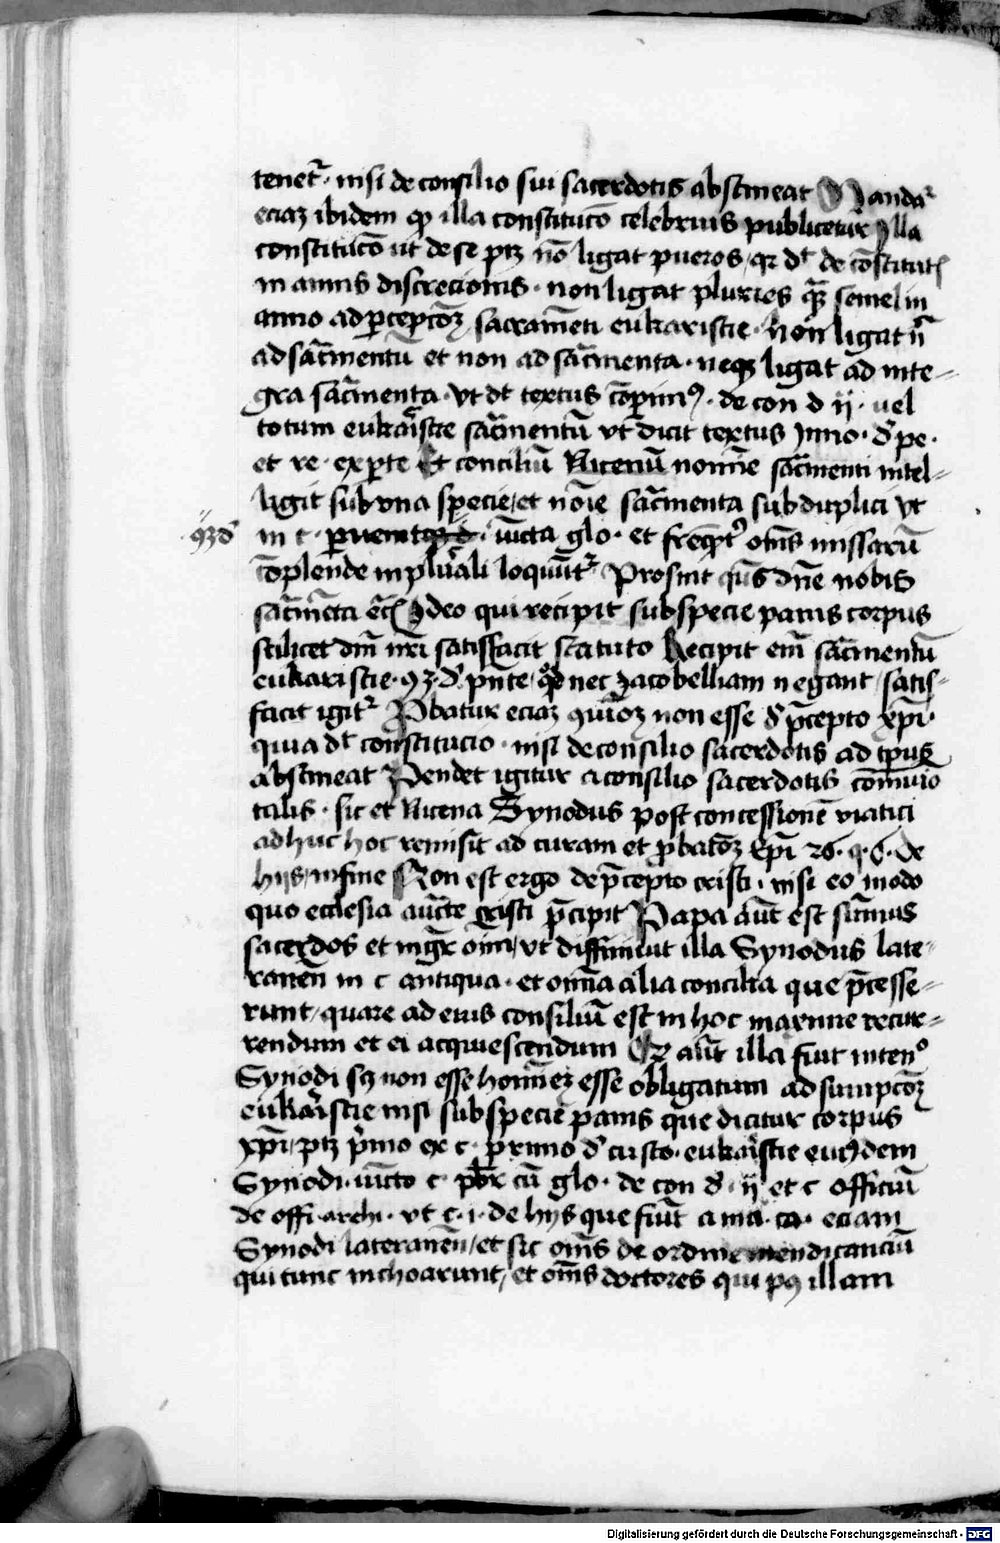 tenet᷑ · nisi de consilio sui sacerdotis abstineat Mandat᷑
eciaʒ ibidem qđ illa constitucō celebrius publicetur Illa
constitucō ut de se ptʒ nō ligat pueros / qr dt de cōstitutis
in annis discrecionis · non ligat pluries qᷓʒ semel in
anno ad ꝑcepcōʒ sacramēti eukaristie · Non ligat
ad sac̄mentū et non ad sac̄menta · neqʒ ligat ad inte=
gra sac̄menta · vt dt textus cōperimꝰ · de con d ij · vel
totum eukar̄istie sac̄mentū vt dicit textus Inno · đ pe ·
et re · ex ꝑte Et conciliū Nicenū nomīe sac̄menti intel=
ligit sub vna specie / et nōie sac̄menta sub duplici vt
in c · ꝑvenit · iūcta glo · et freqt̄ᵉʳ om̄s missarū
cōplende in plur̄ali loquūt᷑ Prosint qs dn̄e nobis
sac̄mēta etc̄ Ideo qui recipit sub specie panis corpus
scilicet dn̄i nr̄i satisfacit statuto Recipit em̄ sac̄mentū
eukaristie · 9ʒ · đ · pn̄te / qđ nec Jacobelliani negant / satis=
facit igit᷑ Probatur eciaʒ non esse đ p̄cepto xp̄i ·
quia dt constitucio · nisi de consilio sacerdotis ad tp̄us
abstineat Pendet igitur a consilio sacerdotis cōmunio
talis · sic et Nicena Synodus post concessionē viatici
adhuc hoc remisit ad curam et ꝓbacōʒ Ep̄i 26 · q · 6 · de
hijs / in fine Non est ergo de p̄cepto cristi · nisi eo modo
quo ecclesia auc̄te cristi p̄cipit Papa aūt est sūmus
sacerdos et mgr̄ oīm / vt diffiniut illa Synodus late=
ranēn in c antiqua · et om̄ia alia concilia que p̄cesse=
runt / quare ad eius consiliū est in hoc maxime recur=
rendum et ei acquiescendum Qʒ aūt illa fiut intenᵒ
Synodi sʒ non esse homīeʒ esse obligatum ad sumpcōʒ
eukar̄istie nisi sub specie panis que dicitur corpus
xp̄i / ptʒ p̄mo ex c · primo đ custo · eukar̄istie eiꝰdem
Synodi · iūcto c · pbr̄ cū glo · de con đ · ij et c officiū
de offi · archi · vt c · i · de hijs que fiūt a ma · ca · eciam
Synodi lateranēn / et sic om̄s de ordine mendicanciū
qui tunc inchoarunt / et om̄s doctores qui pꝰ illam